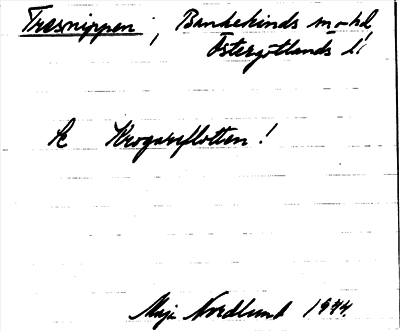 Tresnippen, Bankekinds sn o hd
Östergötlands l.
Se Krogarsflotten!
Maja Nordlund 1974.